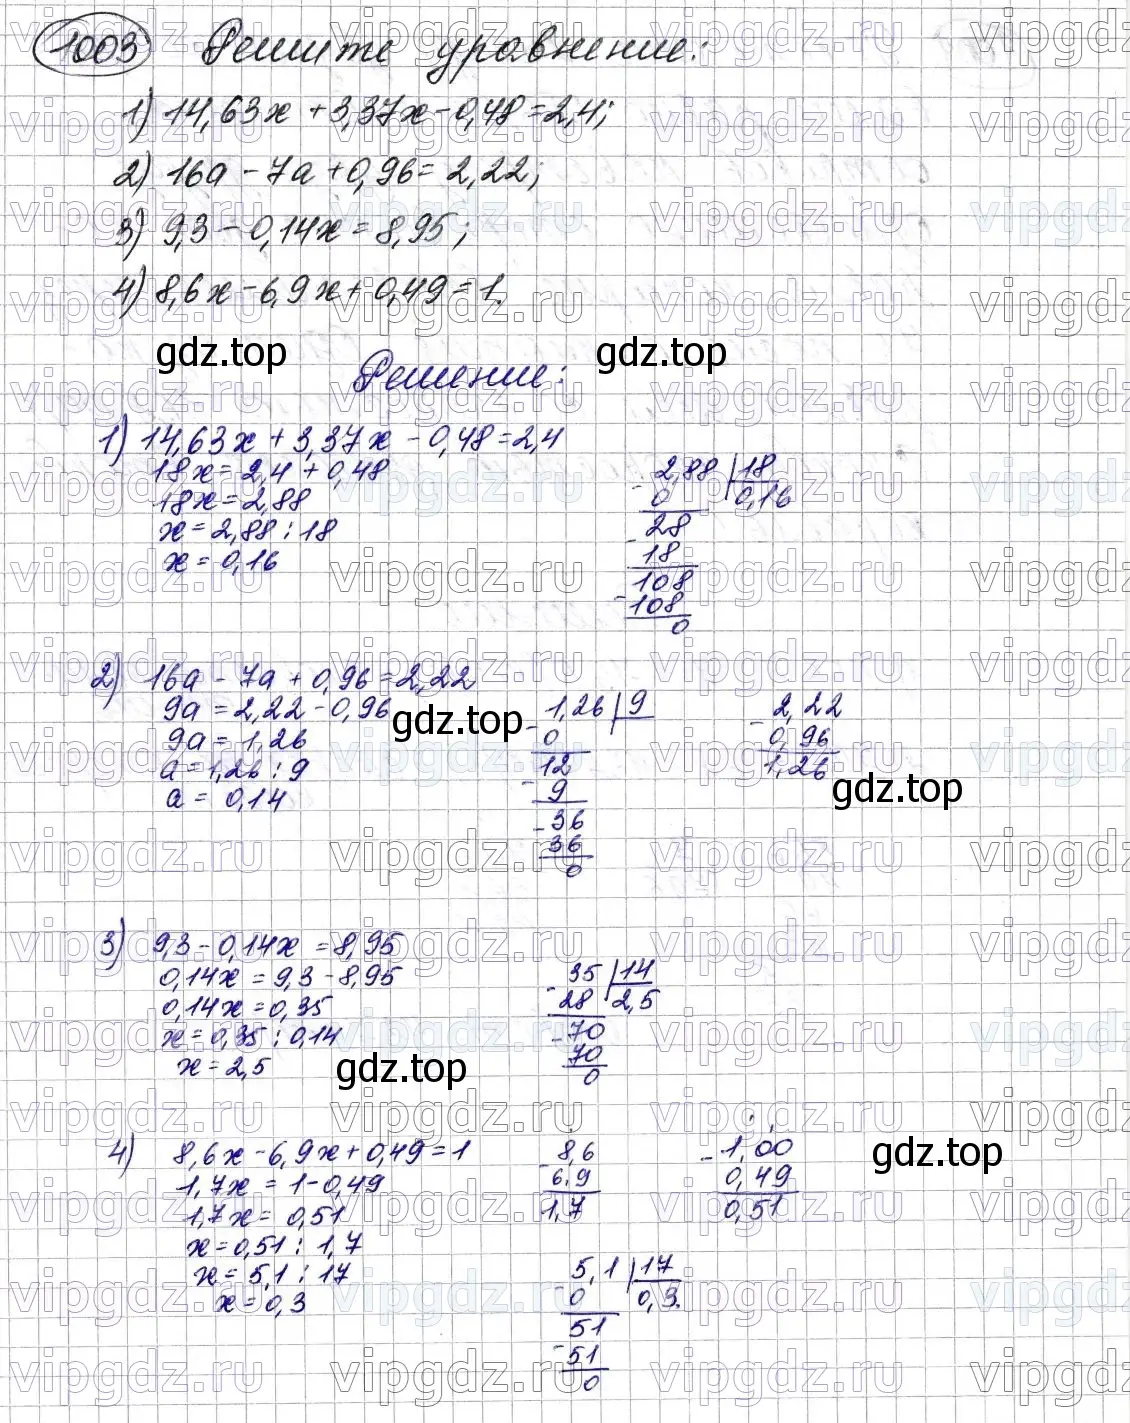 1003 Решите уравнение:
1) 14,63x + 3,37x - 0,48 = 2,4;
2) 16a - 7a + 0,96 = 2,22;
3) 9,3 - 0,14x = 8,95;
4) 8,6x - 6,9x + 0,49 = 1.
gdz.top gdz.top
Решение:
1) 14,63x + 3,37x - 0,48 = 2,4
18x = 2,4 + 0,48
18x = 2,88
x = 2,88 : 18
x = 0,16
- 2,88 | 18
0 0,16
28
- 18
108
- 108
0
2) 16a - 7a + 0,96 = 2,22
9a = 2,22 - 0,96
9a = 1,26
a = 1,26 : 9
a = 0,14
gdz.top
- 1,26 | 9
0
12
- 9
- 36
36
0
- 2,22
0,96
1,26
gdz.top
3) 9,3 - 0,14x = 8,95
0,14x = 9,3 - 8,95
0,14x = 0,35
x = 0,35 : 0,14
x = 2,5
gdz.top
- 35 | 14
28 2,5
- 70
70
0
4) 8,6x - 6,9x + 0,49 = 1
1,7x = 1 - 0,49
1,7x = 0,51
x = 0,51 : 1,7
x = 5,1 : 17
x = 0,3
- 8,6
6,9
1,7
- 1,00
0,49
0,51
gdz.top
- 5,1 | 17
0 0,3.
51
- 51
0
vipgdz.ru